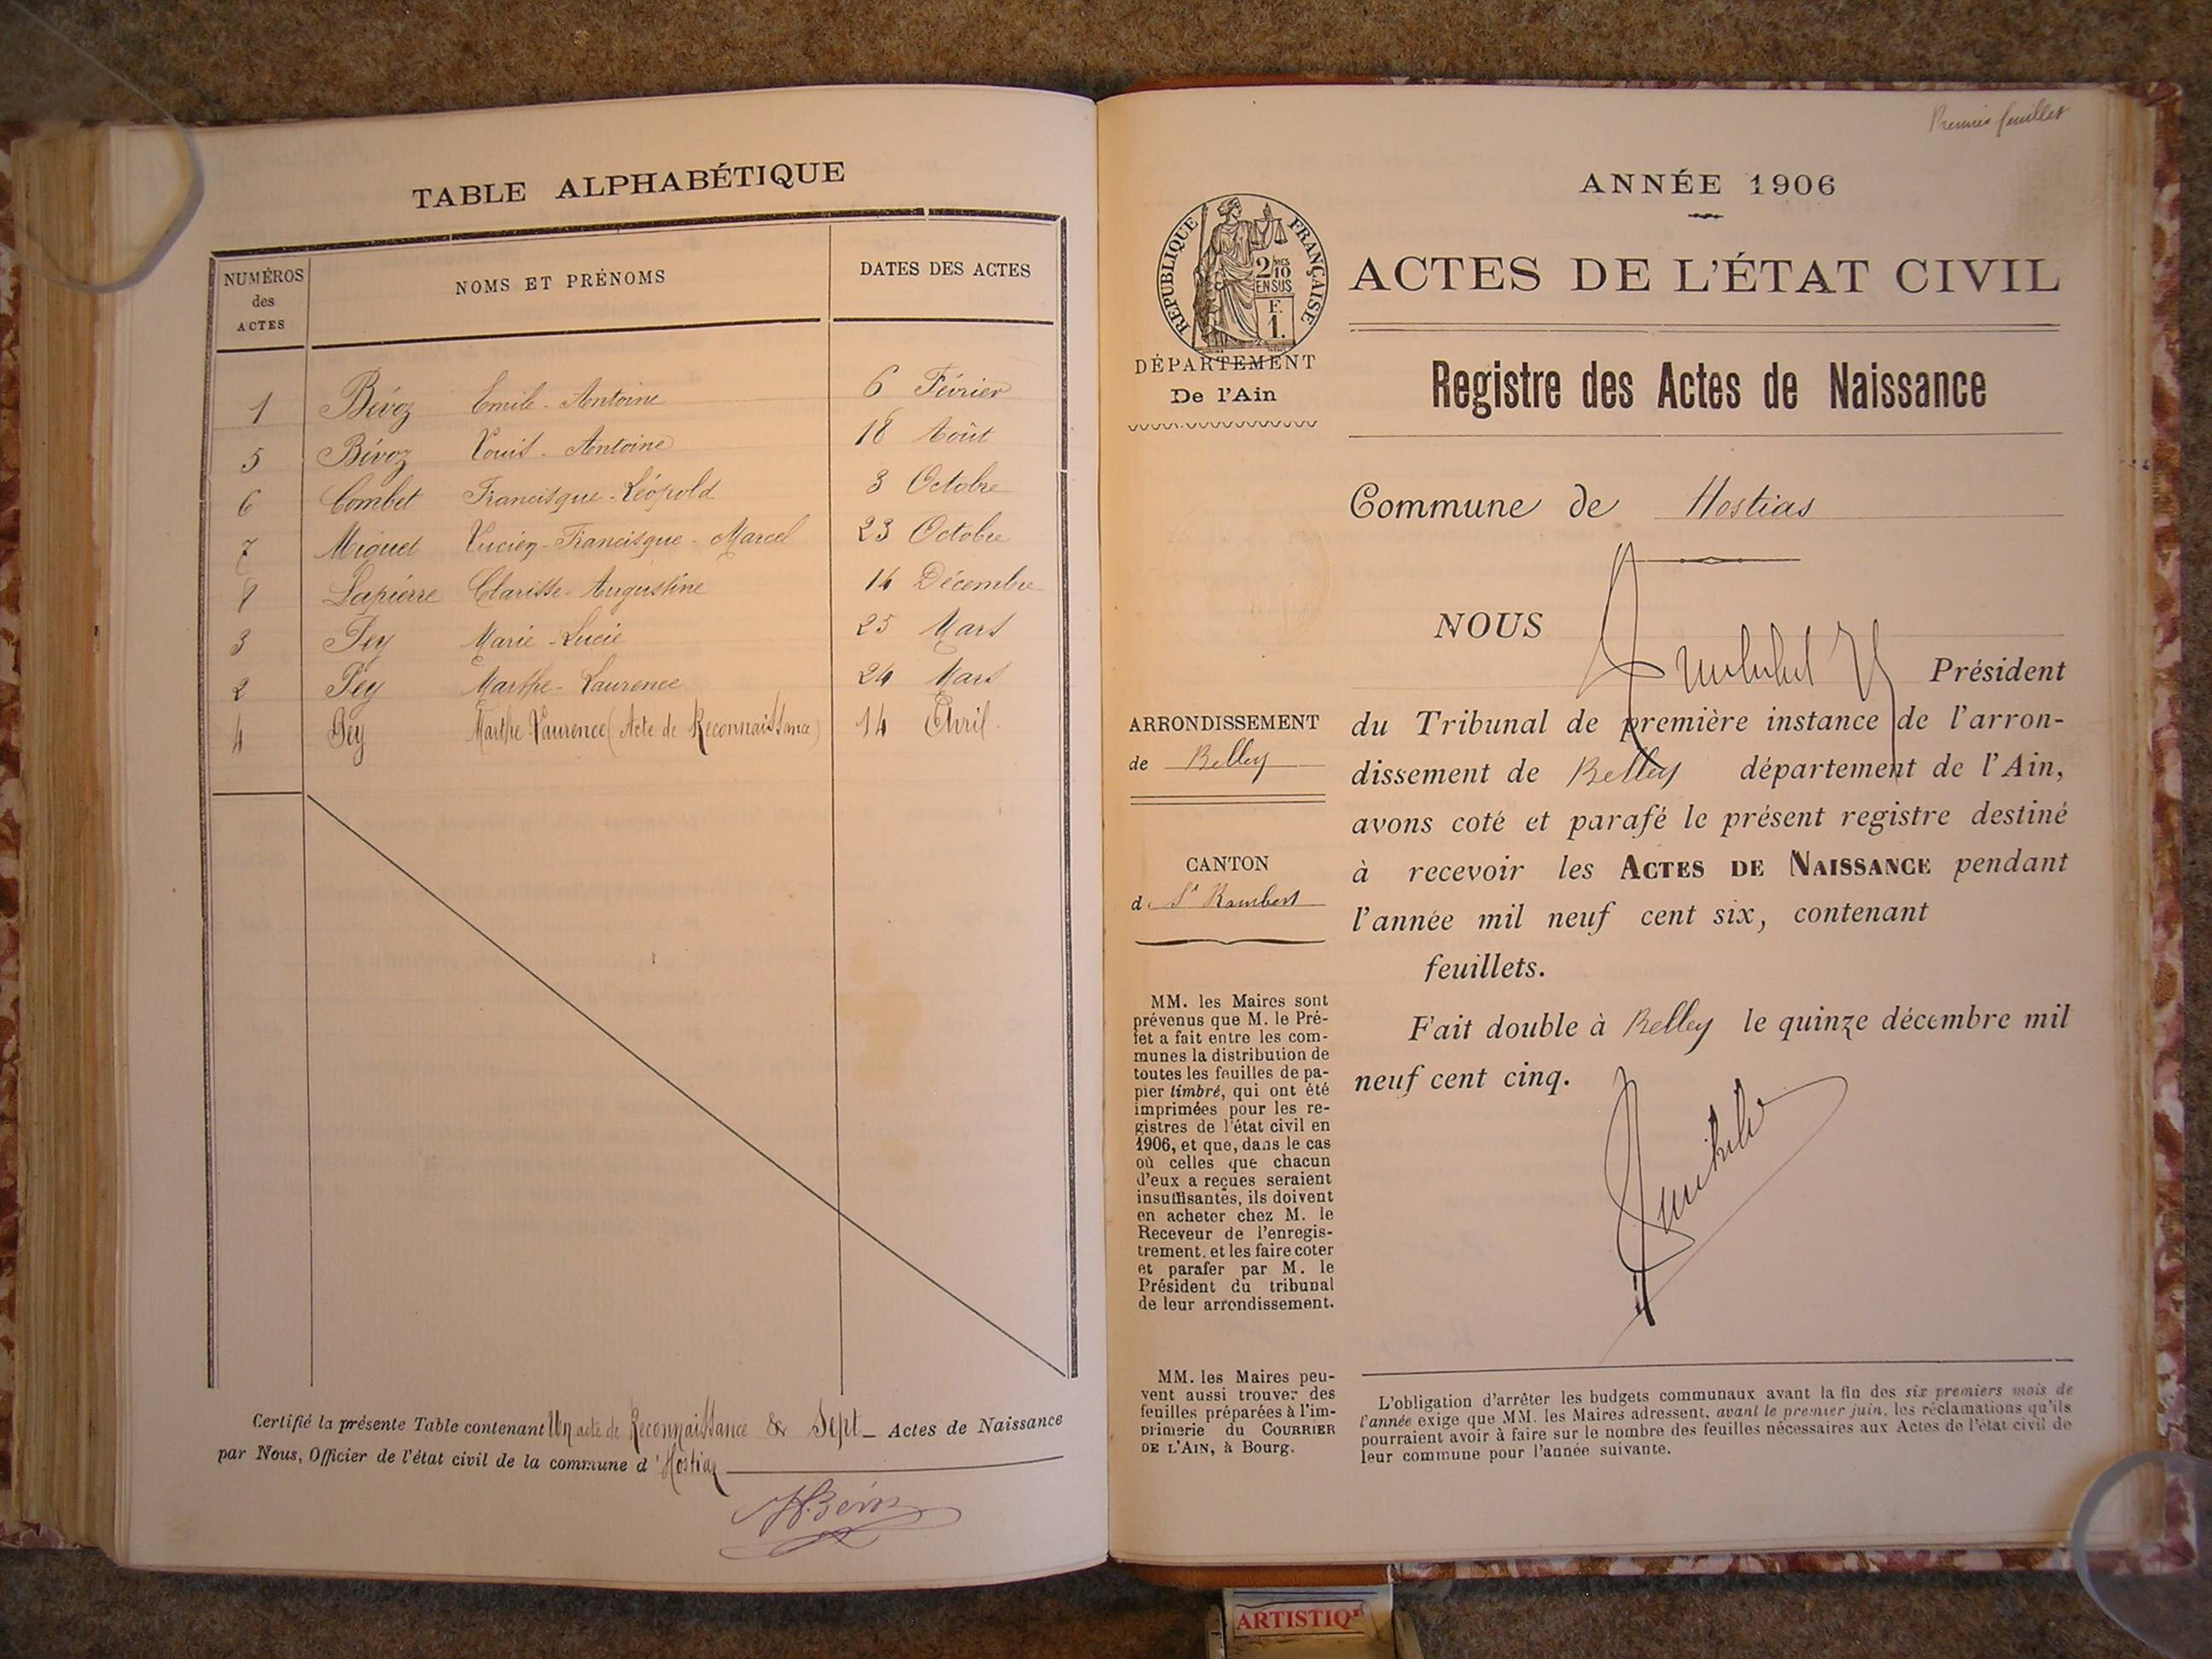 TABLE ALPHABÉTIQUE
NUMÉROS des ACTES
NOMS ET PRÉNOMS
DATES DES ACTES
1 Bévoz Emile-Antoine 6 Février
5 Bévoz Louis-Antoine 18 Août
6 Combet Francisque-Léopold 3 Octobre
7 Miguet Lucien-Francisque-Marcel 23 Octobre
8 Lapierre Clarisse-Augustine 14 Décembre
3 Pey Marie-Lucie 25 Mars
2 Pey Marthe-Laurence 24 Mars
4 Pey Marthe Laurence (Acte de Reconnaissance) 14 Avril.
Certifié la présente Table contenant Un acte de Reconnaissance & Sept Actes de Naissance
par Nous, Officier de l'état civil de la commune d'Hostiaz
Premier feuillet
ANNÉE 1906
RÉPUBLIQUE FRANÇAISE
2/10
EN SUS
F.
1.
ACTES DE L'ÉTAT CIVIL
DÉPARTEMENT
De l'Ain
Registre des Actes de Naissance
Commune de Hostias
NOUS
Président
ARRONDISSEMENT
de Belley
du Tribunal de première instance de l'arron-
dissement de Belley département de l'Ain,
avons coté et parafé le présent registre destiné
à recevoir les ACTES DE NAISSANCE pendant
l'année mil neuf cent six, contenant
feuillets.
Fait double à Belley le quinze décembre mil
neuf cent cinq.
CANTON
de St Rambert
MM. les Maires sont
prévenus que M. le Pré-
fet a fait entre les com-
munes la distribution de
toutes les feuilles de pa-
pier timbré, qui ont été
imprimées pour les re-
gistres de l'état civil en
1906, et que, dans le cas
où celles que chacun
d'eux a reçues seraient
insuffisantes, ils doivent
en acheter chez M. le
Receveur de l'enregis-
trement, et les faire coter
et parafer par M. le
Président du tribunal
de leur arrondissement.
MM. les Maires peu-
vent aussi trouver des
feuilles préparées à l'im-
primerie du COURRIER
DE L'AIN, à Bourg.
L'obligation d'arrêter les budgets communaux avant la fin des six premiers mois de
l'année exige que MM. les Maires adressent, avant le premier juin, les réclamations qu'ils
pourraient avoir à faire sur le nombre des feuilles nécessaires aux Actes de l'état civil de
leur commune pour l'année suivante.
ARTISTIQ